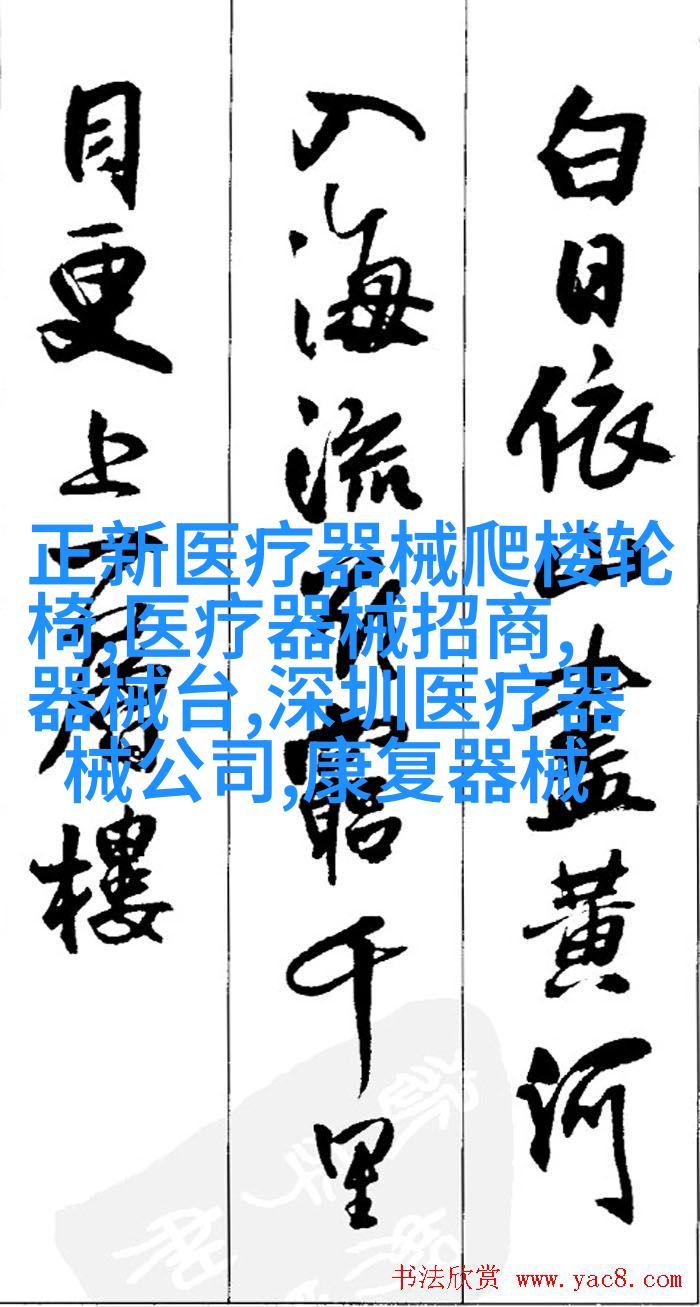 白日依山盡黃河
入海流欲窮千里
目更上一層樓
正新医疗器械爬楼轮
椅,医疗器械招商,
器械台,深圳医疗器
械公司,康复器械
书法欣赏 www.yac8.com